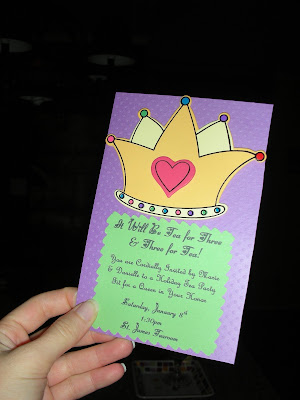 It Will Be Tea for Three
& Three for Tea!
You are Cordially Invited by Marie
& Danielle to a Holiday Tea Party
Fit for a Queen in Your Honor
Saturday, January 8th
1:30pm
St. James Tearoom